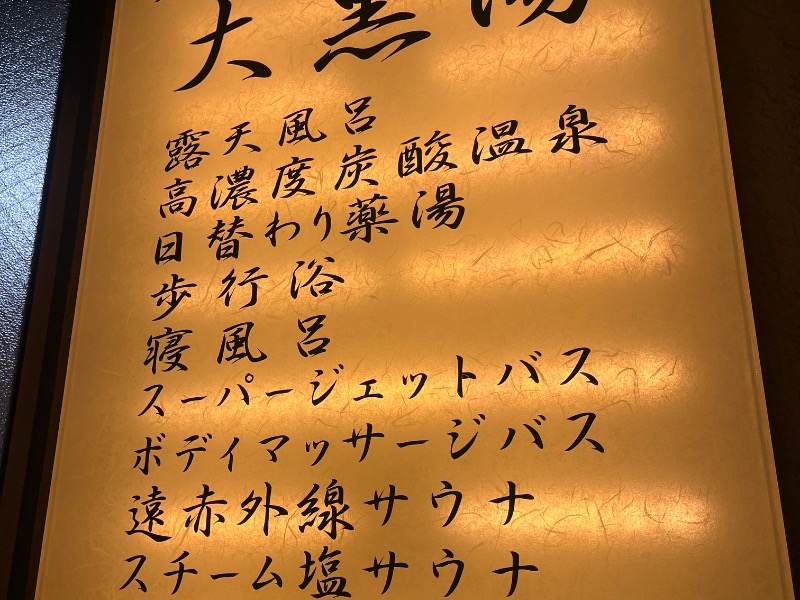 大黒湯
露天風呂
高濃度炭酸温泉
日替わり薬湯
歩行浴
寝風呂
スーパージェットバス
ボディマッサージバス
遠赤外線サウナ
スチーム塩サウナ